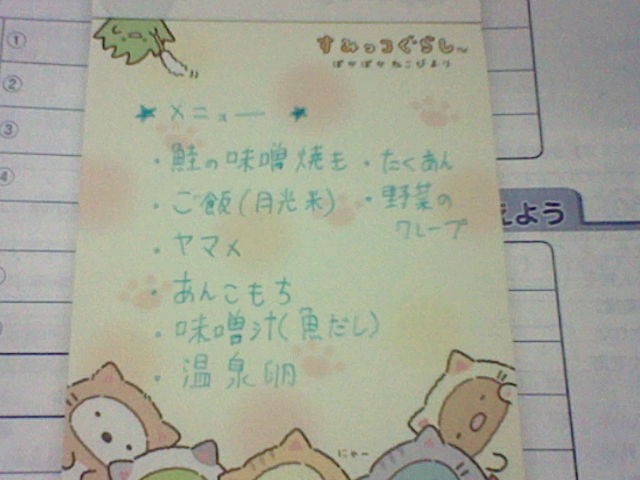 ①
②
③
④
すみっコぐらし～
ぽかぽかねこびより
★メニュー★
・鮭の味噌焼き ・たくあん
・ご飯(月光米) ・野菜の
クレープ
・ヤマメ
・あんこもち
・味噌汁(魚だし)
・温泉卵
えよう
にゃー